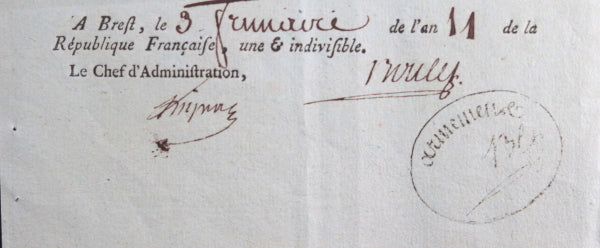 A Breſt, le 3 frimaire de l'an 11 de la
République Françaiſe, une & indiviſible.
Le Chef d'Adminiſtration,
armemens